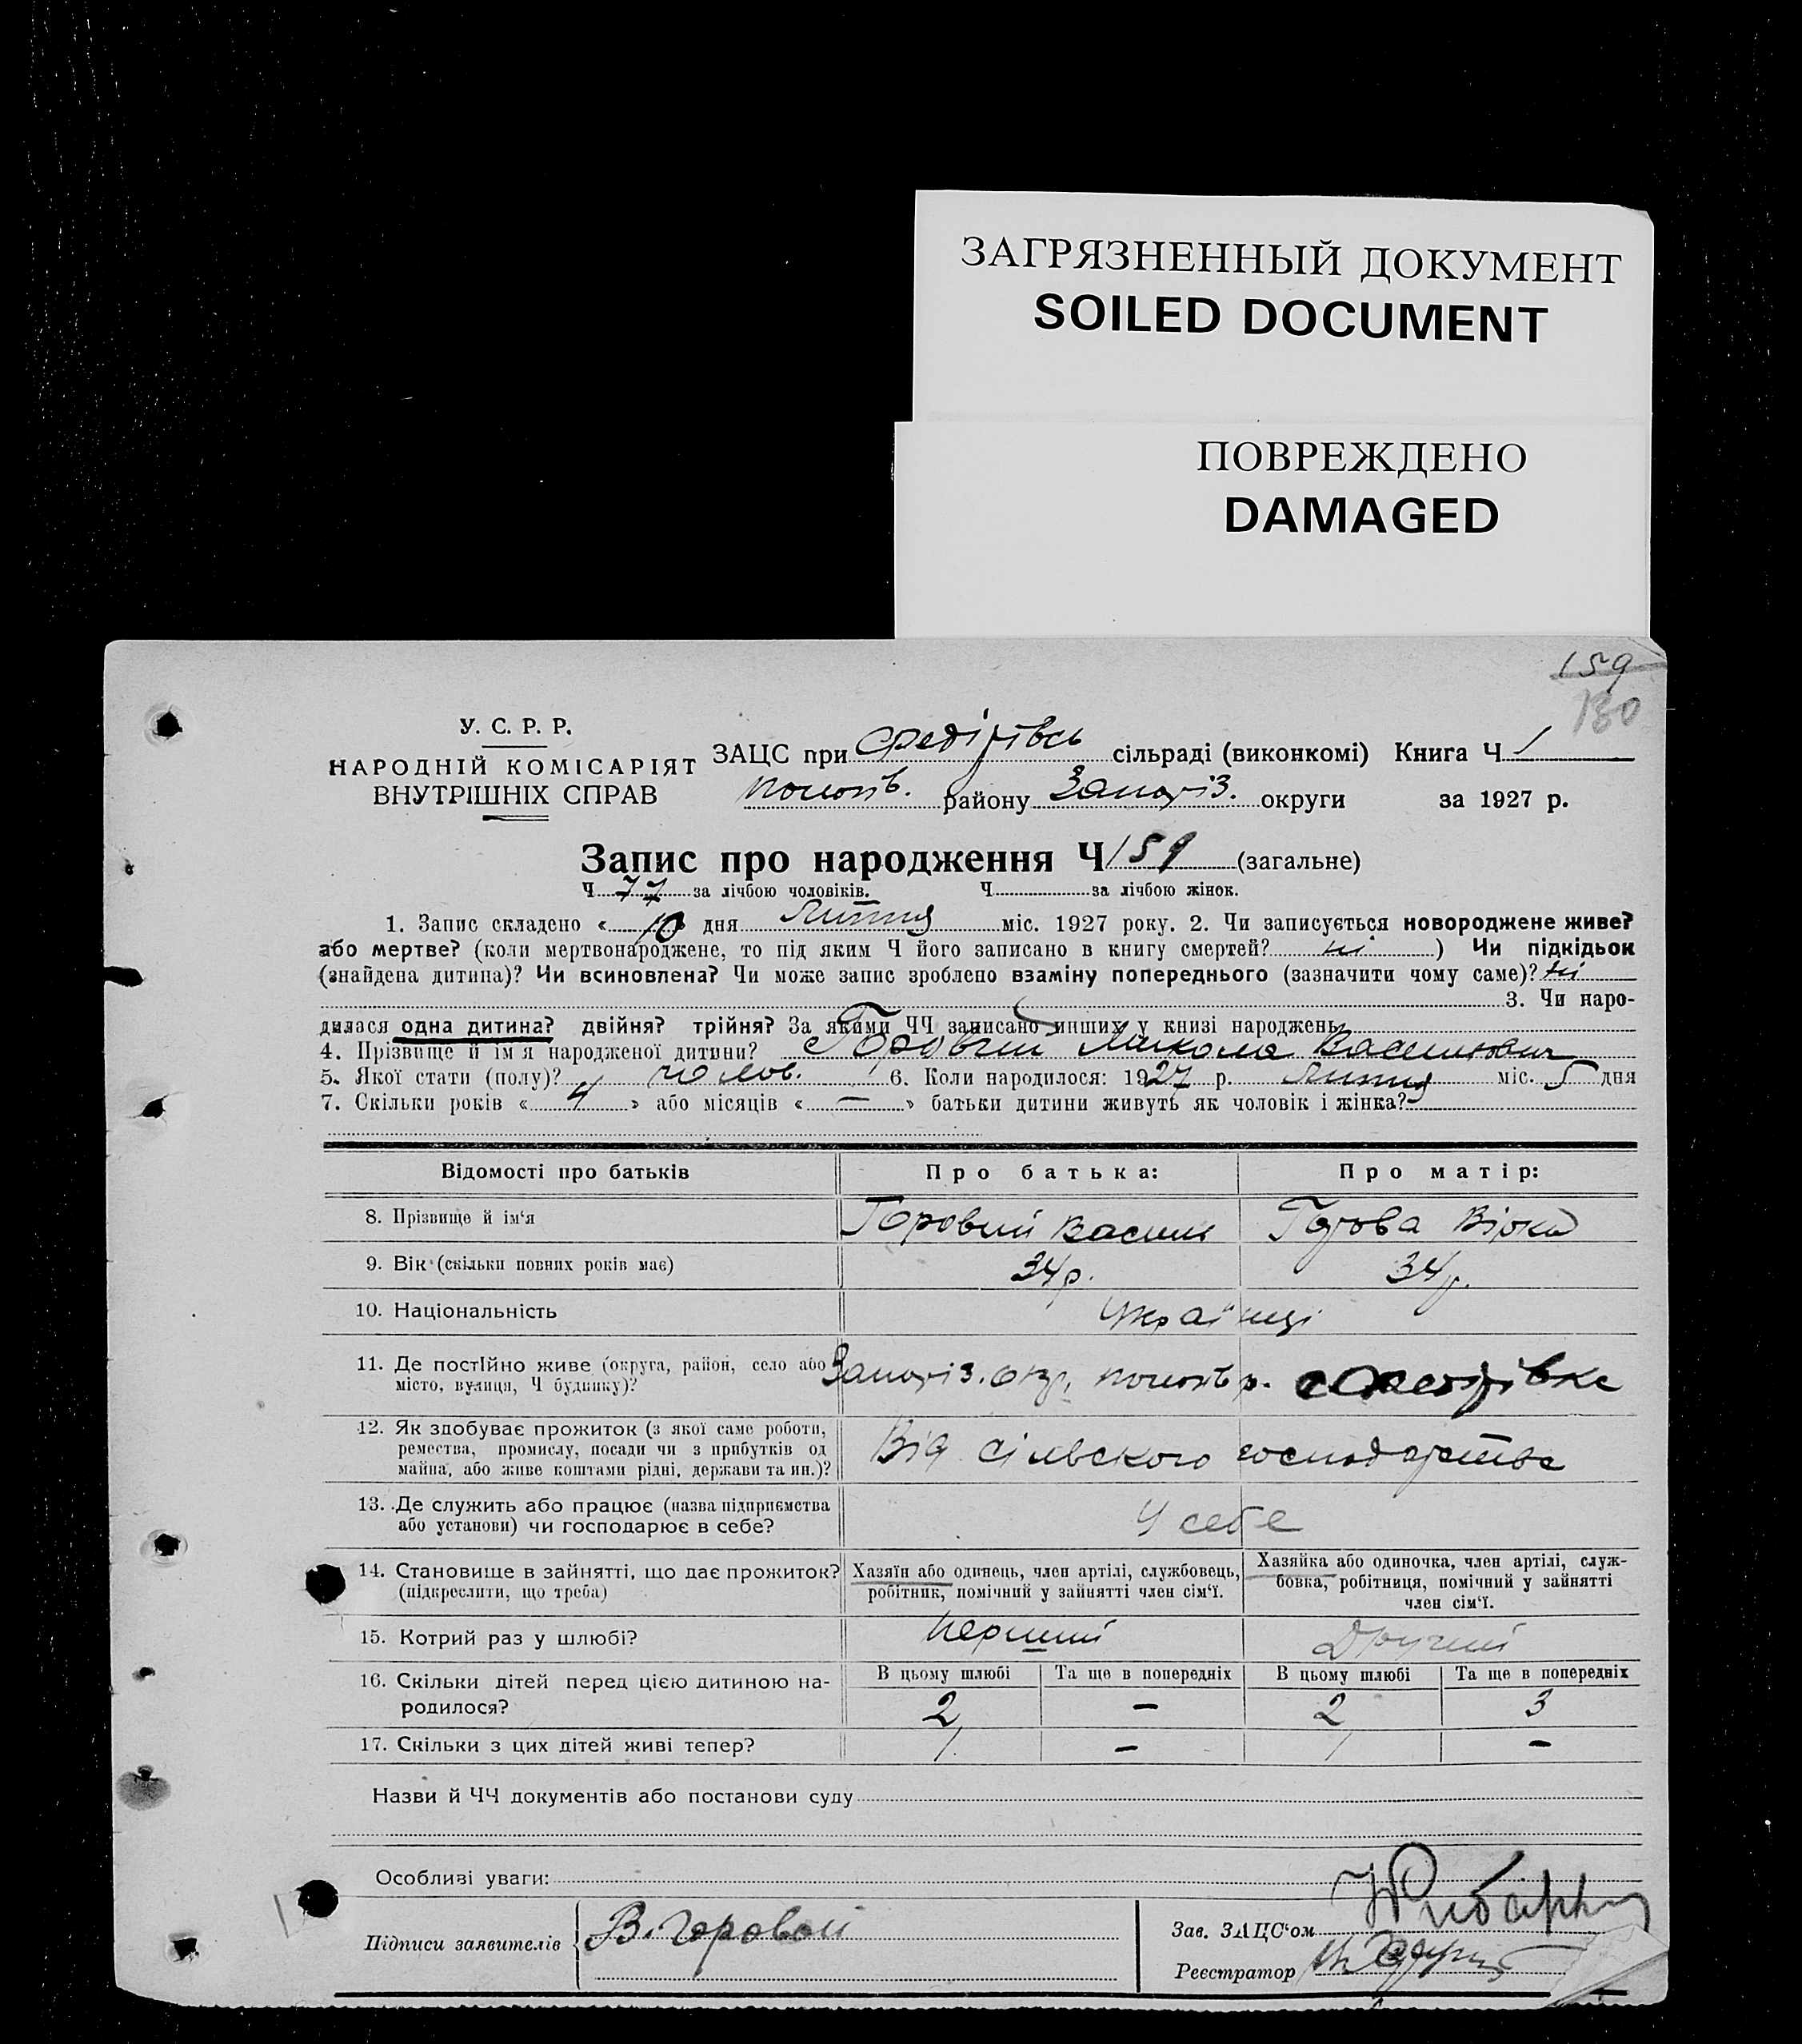 ЗАГРЯЗНЕННЫЙ ДОКУМЕНТ
SOILED DOCUMENT
ПОВРЕЖДЕНО
DAMAGED
159
130
У. С. Р. Р.
НАРОДНІЙ КОМІСАРІЯТ
ВНУТРІШНІХ СПРАВ
ЗАЦС при сільраді (виконкомі) Книга Ч 1
району Запоріз. округи за 1927 р.
Запис про народження Ч 159 (загальне)
Ч 77 за лічбою чоловіків. Ч за лічбою жінок.
1. Запис складено « 10 дня Липня міс. 1927 року. 2. Чи записується новороджене живе?
або мертве? (коли мертвонароджене, то під яким Ч його записано в книгу смертей? ні ) Чи підкідьок
(знайдена дитина)? Чи всиновлена? Чи може запис зроблено взаміну попереднього (зазначити чому саме)? ні
3. Чи наро-
дилася одна дитина? двійня? трійня? За якими ЧЧ записано инших у книзі народжень
4. Прізвище й ім'я народженої дитини? Горовий Микола Васильович
5. Якої стати (полу)? чолов. 6. Коли народилося: 1927 р. Липня міс. 5 дня
7. Скільки років « 4 » або місяців « — » батьки дитини живуть як чоловік і жінка?
Відомості про батьків Про батька: Про матір:
8. Прізвище й ім'я Горовий Василь Горова Вірка
9. Вік (скільки повних років має) 34 р. 34 р.
10. Національність Українці
11. Де постійно живе (округа, район, село або
місто, вулиця, Ч будинку)? Запоріз. окр.
12. Як здобуває прожиток (з якої саме роботи,
ремества, промислу, посади чи з прибутків од
майна, або живе коштами рідні, держави та ин.)? Від сільского господарства
13. Де служить або працює (назва підприємства
або установи) чи господарює в себе? У себе
14. Становище в зайнятті, що дає прожиток?
(підкреслити, що треба)
Хазяїн або одинець, член артілі, службовець,
робітник, помічний у зайнятті член сім'ї.
Хазяйка або одиночка, член артілі, служ-
бовка, робітниця, помічний у зайнятті
член сім'ї.
15. Котрий раз у шлюбі? перший Другий
16. Скільки дітей перед цією дитиною на-
родилося?
В цьому шлюбі Та ще в попередніх В цьому шлюбі Та ще в попередніх
2 — 2 3
17. Скільки з цих дітей живі тепер? 1 — 1 —
Назви й ЧЧ документів або постанови суду
Особливі уваги:
Підписи заявителів В. Горовой
Зав. ЗАЦС'ом
Реєстратор